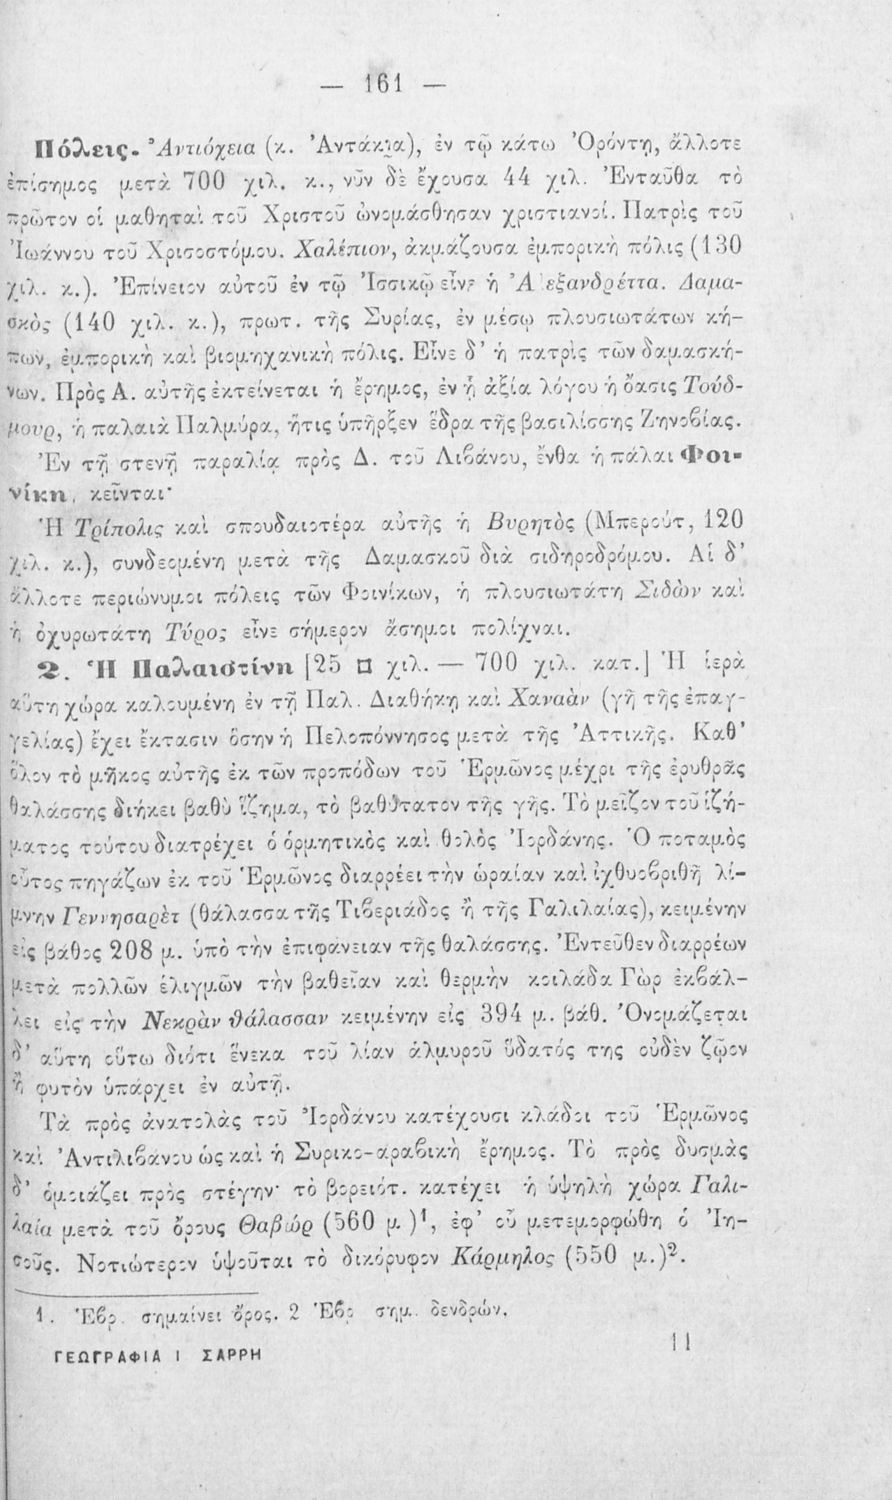 — 161 —
Πόλεις. Ἀντιόχεια (κ. Ἀντάκια), ἐν τῷ κάτω Ὀρόντῃ, ἄλλοτε
ἐπίσημος μετὰ 700 χιλ. κ., νῦν δὲ ἔχουσα 44 χιλ. Ἐνταῦθα τὸ
πρῶτον οἱ μαθηταὶ τοῦ Χριστοῦ ὠνομάσθησαν χριστιανοί. Πατρὶς τοῦ
Ἰωάννου τοῦ Χρισοστόμου. Χαλέπιον, ἀκμάζουσα ἐμπορικὴ πόλις (130
χιλ. κ.). Ἐπίνειον αὐτοῦ ἐν τῷ Ἰσσικῷ εἶνε ἡ Ἀλεξανδρέττα. Δαμα-
σκὸς (140 χιλ. κ.), πρωτ. τῆς Συρίας, ἐν μέσῳ πλουσιωτάτων κή-
πων, ἐμπορικὴ καὶ βιομηχανικὴ πόλις. Εἶνε δ' ἡ πατρὶς τῶν δαμασκή-
νων. Πρὸς Α. αὐτῆς ἐκτείνεται ἡ ἔρημος, ἐν ᾗ ἀξία λόγου ἡ ὄασις Τούδ-
μουρ, ἡ παλαιὰ Παλμύρα, ἥτις ὑπῆρξεν ἕδρα τῆς βασιλίσσης Ζηνοβίας.
Ἐν τῇ στενῇ παραλίᾳ πρὸς Δ. τοῦ Λιβάνου, ἔνθα ἡ πάλαι Φοι-
νίκη, κεῖνται·
Ἡ Τρίπολις καὶ σπουδαιοτέρα αὐτῆς ἡ Βυρητὸς (Μπερούτ, 120
χιλ. κ.), συνδεομένη μετὰ τῆς Δαμασκοῦ διὰ σιδηροδρόμου. Αἱ δ'
ἄλλοτε περιώνυμοι πόλεις τῶν Φοινίκων, ἡ πλουσιωτάτη Σιδὼν καὶ
ἡ ὀχυρωτάτη Τύρος εἶνε σήμερον ἄσημοι πολίχναι.
2. Ἡ Παλαιστίνη [25 □ χιλ. — 700 χιλ. κατ.] Ἡ ἱερὰ
αὕτη χώρα καλουμένη ἐν τῇ Παλ. Διαθήκῃ καὶ Χαναὰν (γῆ τῆς ἐπαγ-
γελίας) ἔχει ἔκτασιν ὅσην ἡ Πελοπόννησος μετὰ τῆς Ἀττικῆς. Καθ'
ὅλον τὸ μῆκος αὐτῆς ἐκ τῶν προπόδων τοῦ Ἑρμῶνος μέχρι τῆς ἐρυθρᾶς
θαλάσσης διήκει βαθὺ ἵζημα, τὸ βαθύτατον τῆς γῆς. Τὸ μεῖζον τοῦ ἱζή-
ματος τούτου διατρέχει ὁ ὁρμητικὸς καὶ θολὸς Ἰορδάνης. Ὁ ποταμὸς
οὗτος πηγάζων ἐκ τοῦ Ἑρμῶνος διαρρέει τὴν ὡραίαν καὶ ἰχθυοβριθῆ λί-
μνην Γεννησαρὲτ (θάλασσα τῆς Τιβεριάδος ἢ τῆς Γαλιλαίας), κειμένην
εἰς βάθος 208 μ. ὑπὸ τὴν ἐπιφάνειαν τῆς θαλάσσης. Ἐντεῦθεν διαρρέων
μετὰ πολλῶν ἑλιγμῶν τὴν βαθεῖαν καὶ θερμὴν κοιλάδα Γὼρ ἐκβάλ-
λει εἰς τὴν Νεκρὰν θάλασσαν κειμένην εἰς 394 μ. βάθ. Ὀνομάζεται
δ' αὕτη οὕτω διότι ἕνεκα τοῦ λίαν ἁλμυροῦ ὕδατός της οὐδὲν ζῷον
ἢ φυτὸν ὑπάρχει ἐν αὐτῇ.
Τὰ πρὸς ἀνατολὰς τοῦ Ἰορδάνου κατέχουσι κλάδοι τοῦ Ἑρμῶνος
καὶ Ἀντιλιβάνου ὡς καὶ ἡ Συρικο-αραβικὴ ἔρημος. Τὸ πρὸς δυσμὰς
δ' ὁμοιάζει πρὸς στέγην· τὸ βορειότ. κατέχει ἡ ὑψηλὴ χώρα Γαλι-
λαία μετὰ τοῦ ὄρους Θαβὼρ (560 μ.)¹, ἐφ' οὗ μετεμορφώθη ὁ Ἰη-
σοῦς. Νοτιώτερον ὑψοῦται τὸ δικόρυφον Κάρμηλος (550 μ.)².
1. Ἑβρ. σημαίνει ὄρος. 2 Ἑβρ σημ. δενδρών.
ΓΕΩΓΡΑΦΙΑ Ι ΣΑΡΡΗ
11